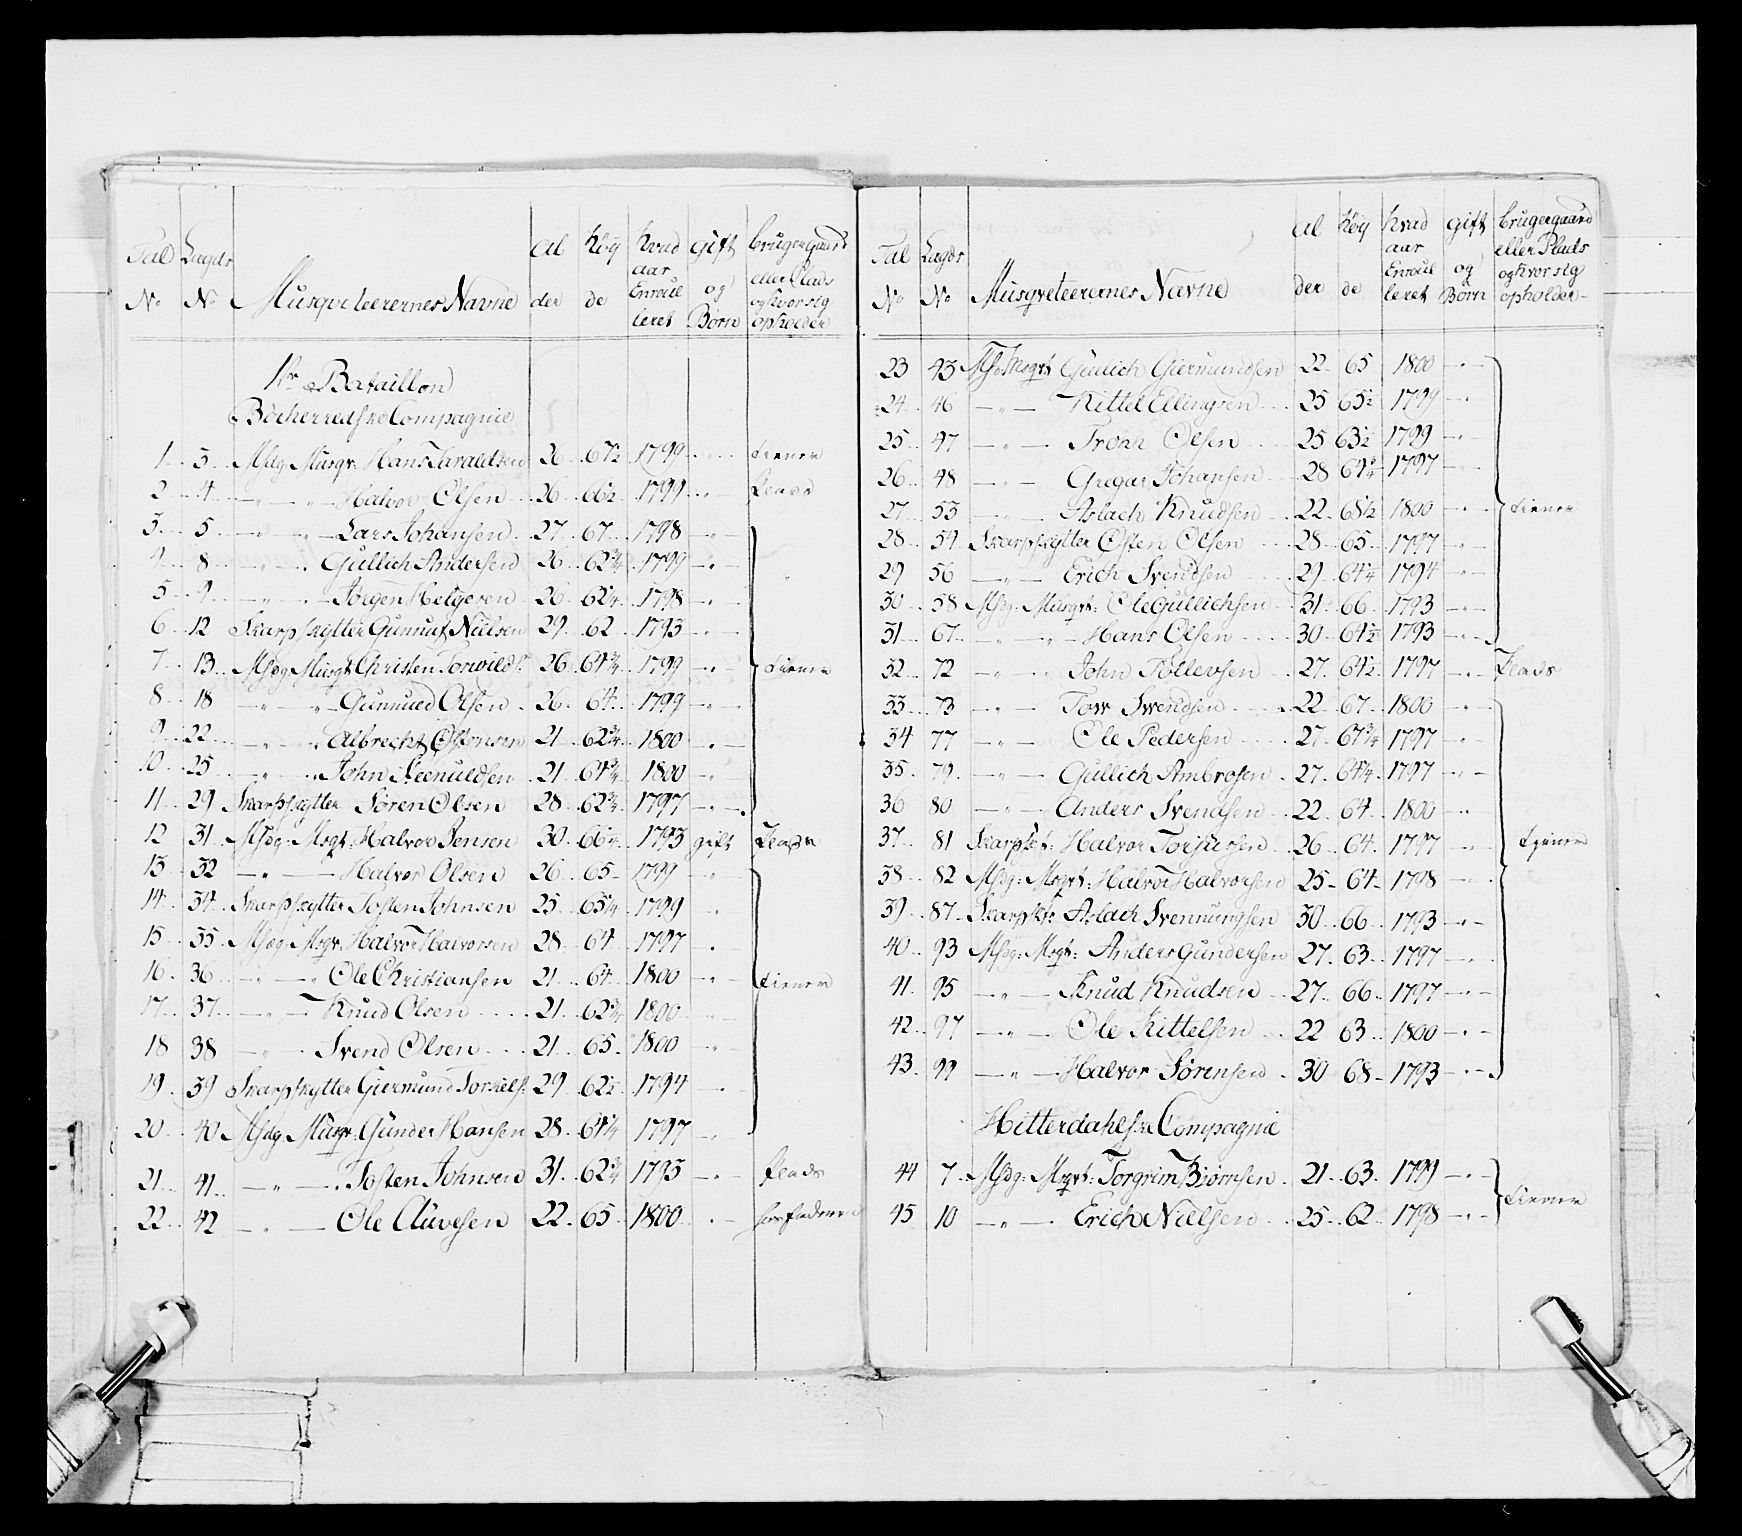 Tal No Lagds No Musqveteerernes Navne Al der Höy de hvad aar Enroulleret Gift og Børn bruger gaard eller Plads og hvor sig opholder
1ste Bataillon
Böcherredske Compagnie
1 3 Msdg Musqr: Hans Taraldsen 26 67½ 1799 tiener
2 4 —"— Halvor Olsen 26 66½ 1799 Plads
3 5 —"— Lars Johansen 27 67 1798 —"—
4 8 —"— Gullich Andersen 26 62¾ 1799 —"—
5 9 —"— Jørgen Helgesen 26 62¼ 1798 —"—
6 12 Skarpskytter Gunnuf Nielsen 29 62 1793 —"—
7 13 Msdg Musqt Christen Torvilds: 26 64¾ 1799 —"— tiener
8 18 —"— Gunnued Olsen 26 64 1799 —"—
9 22 —"— Albrecht Ostensen 21 62¾ 1800 —"—
10 25 —"— John Steenuldsen 21 64¾ 1800 —"—
11 29 Skarpskytter Søren Olsen 28 62¾ 1797 —"—
12 31 Msdg: Msqt: Halvor Jensen 30 66¼ 1793 gift Plads
13 32 —"— Halvor Olsen 26 65 1799 —"—
14 34 Skarpskytter Tosten Johnsen 25 65¼ 1799 "
15 35 Msdg: Msqr: Halvor Halvorsen 28 64 1797 "
16 36 —"— Ole Christiansen 21 64 1800 —"— tiener
17 37 —"— Knud Olsen 21 62¾ 1800 —"—
18 38 —"— Svend Olsen 21 65 1800 —"—
19 39 Skarpskytter Giermund Torkilds: 29 62½ 1794 "
20 40 Msdg Musqr: Gunder Hansen 28 64¼ 1797 —"—
21 41 —"— Tosten Johnsen 31 62¾ 1793 —"— Plads
22 42 —"— Ole Auvesen 22 65 1800 " — hos Faderen
Tal No Lagds No Musqveteerernes Navne Al der Höy de hvad aar Enroulleret Gift og Børn bruger gaard eller Plads og hvor sig opholder
23 43 Msdg Msqt Gullich Giermundsen 22 65 1800 —"—
24 46 —"— Kittel Ellingsen 25 65½ 1799 —"—
25 47 —"— Tronn Olsen 25 63½ 1799 —"—
26 48 —"— Gregar Johansen 28 64¾ 1797 —"—
27 53 —"— Aslach Knudsen 22 65½ 1800 —"— tiener
28 54 Skarpskytter Osten Olsen 28 65 1797 —"—
29 56 —"— Erich Svendsen 29 64¼ 1794 —"—
30 58 Msdg: Musqt: Ole Gullichsen 31 66 1793 —"—
31 67 —"— Hans Olsen 30 64½ 1793 —"—
32 72 —"— John Tollevsen 27 64½ 1797 —"— Plads
33 73 —"— Tov Svendsen 22 67 1800 —"—
34 77 —"— Ole Pedersen 27 67¾ 1797 —"—
35 79 —"— Gullich Ambrosen 27 64¼ 1797 —"—
36 80 —"— Anders Svendsen 22 64 1800 —"—
37 81 Skarpsk: Halvor Torjusen 26 64 1797 —"— tjener
38 82 Msdg: Msqt: Halvor Halvorsen 25 64 1798 —"—
39 87 Skarpsk: Aslach Svennungsen 30 66 1793 —"—
40 93 Msdg: Msqt: Anders Gundersen 27 63 1797 —"—
41 95 —"— Knud Knudsen 27 66 1797 —"—
42 97 —"— Ole Kittelsen 22 63 1800 —"—
43 99 —"— Halvor Sörensen 30 68 1793 —"—
Hitterdahlske Compagnie
44 7 Msdg: Msqt: Torgrim Biörnsen 21 63 1799 —"—
45 10 —"— Erich Nielsen 25 62 1798 —"— tiener